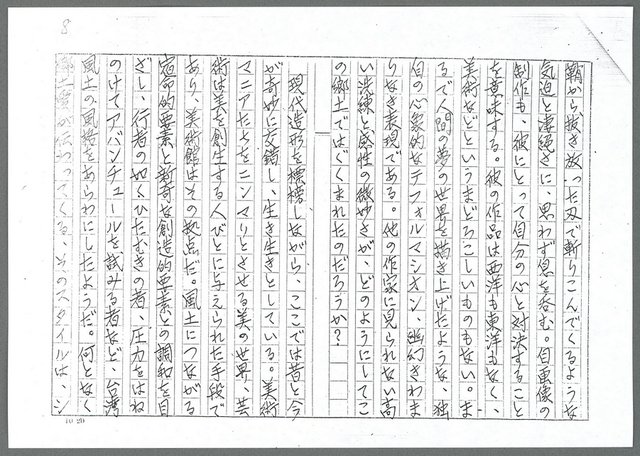 鞘から抜き放った刃で斬りこんでくるような
気迫と凄絶さに、思わず息を呑む。自画像の
制作も、彼にとって自分の心と対決すること
を意味する。彼の作品は西洋も東洋もなく、
美術などというまどろこしいものもない。ま
るで人間の夢の世界を描き上げたような、独
自の心象的なデフォルマシオン、幽幻きわま
りなき表現である。他の作家に見られない高
い洗練と感性の微妙さが、どのようにしてこ
の郷土ではぐくまれたのだろうか?
現代造形を標榜しながら、ここでは昔と今
が奇妙に交錯し、生き生きとしている。美術
マニアたちをニンマリとさせる美の世界、芸
術は美を創生する人びとに与えられた手段で
あり、美術館はその拠点だ。風土につながる
宿命的要素と斬奇な創造的要素との調和を目
ざし、行者の如くひたむきの者、圧力をはね
のけてアバンチュールを試みる者など、台湾
風土の風格をあらわにしたようだ。何となく
郷土質が伝わってくる、そのスタイルは、シ
8